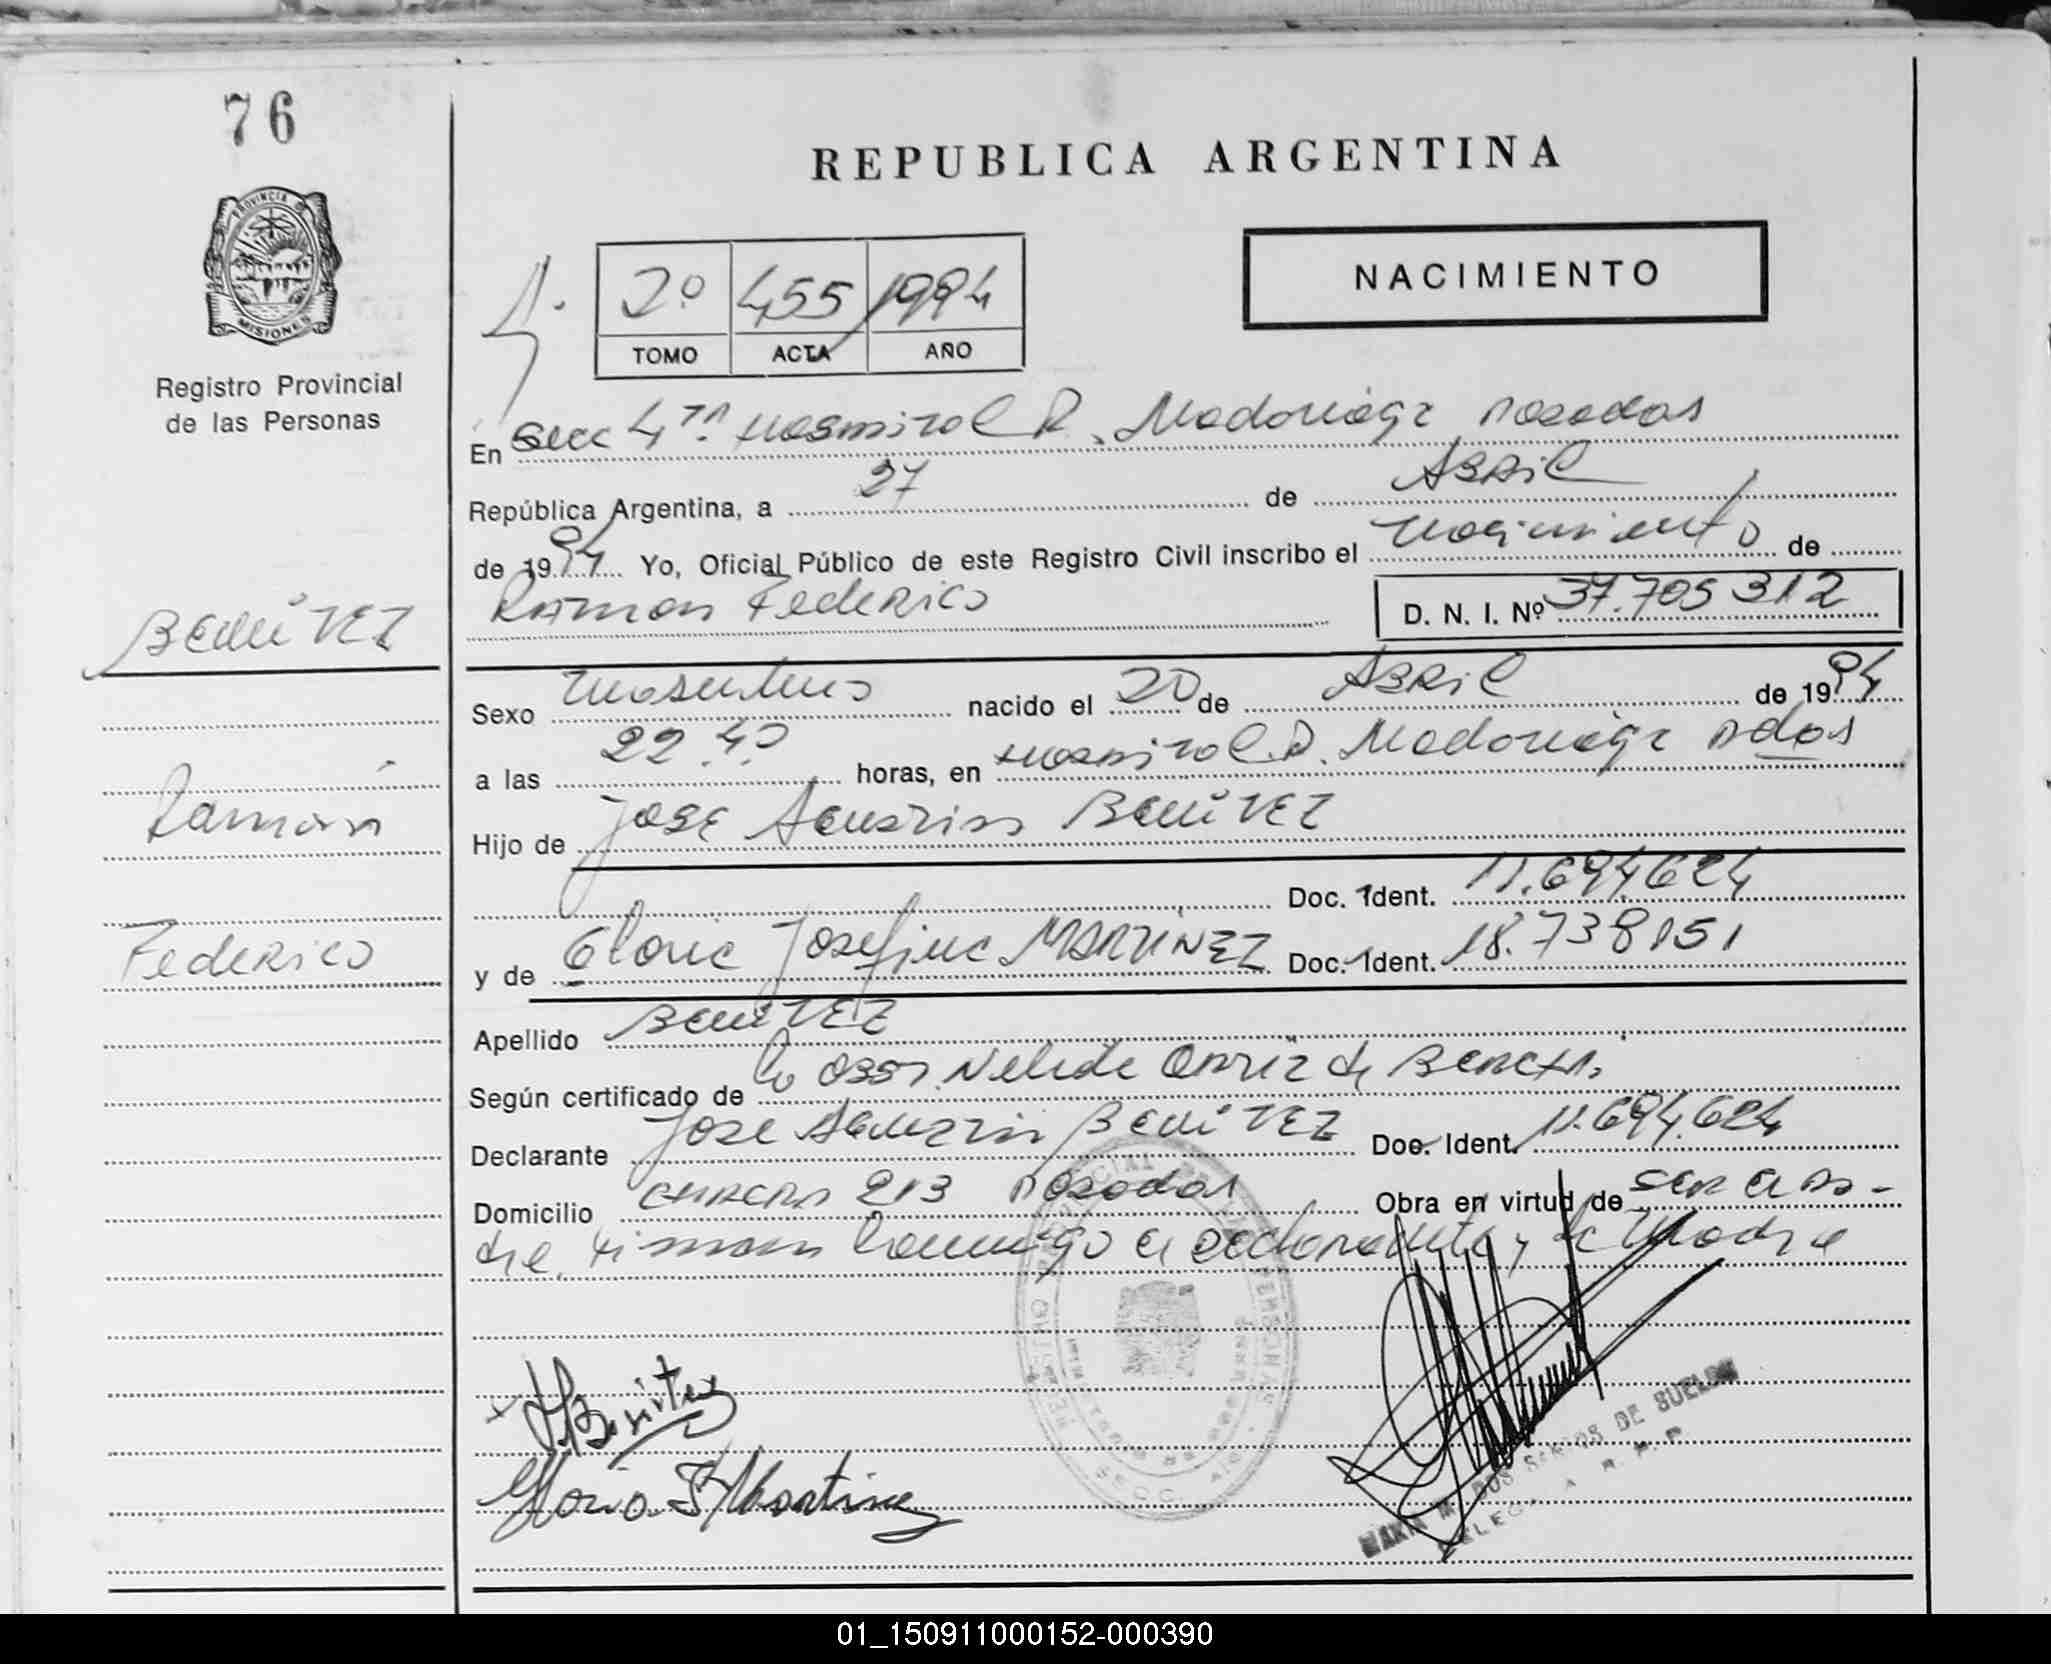 76
REPUBLICA ARGENTINA
PROVINCIA DE
MISIONES
Registro Provincial
de las Personas
NACIMIENTO
2º 455 1994
TOMO ACTA AÑO
En Secc 4ta Hospital R. Madariaga Posadas
República Argentina, a 27 de Abril
de 1994 Yo, Oficial Público de este Registro Civil inscribo el nacimiento de
Ramon Federico D. N. I. Nº 37.705312
BENÍTEZ
Sexo masculino nacido el 20 de Abril de 1994
a las 22.40 horas, en Hospital R. Madariaga Pdas
Ramón
Hijo de José BENÍTEZ
Doc. Ident. 11.694.624
Federico
y de Gloria Josefina MARTINEZ Doc. Ident. 18.738151
Apellido BENÍTEZ
Según certificado de la Obst. Nelida de
Declarante José BENÍTEZ Doc. Ident. 11.694.624
Domicilio 213 Posadas Obra en virtud de ser el pa-
dre. Firman conmigo el declarante y la Madre
Benitez
Gloria J Martinez
MARIA DOS SANTOS DE SUELDO
01_150911000152-000390